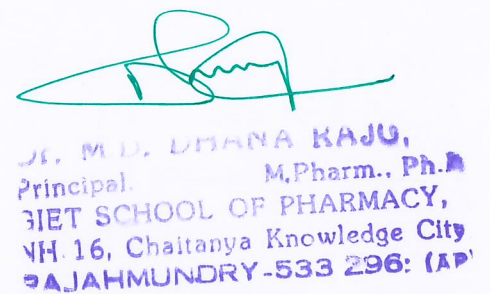 Dr. M.D. DHANA RAJU,
Principal. M.Pharm., Ph.D
GIET SCHOOL OF PHARMACY,
NH. 16, Chaitanya Knowledge City
RAJAHMUNDRY-533 296: (AP)